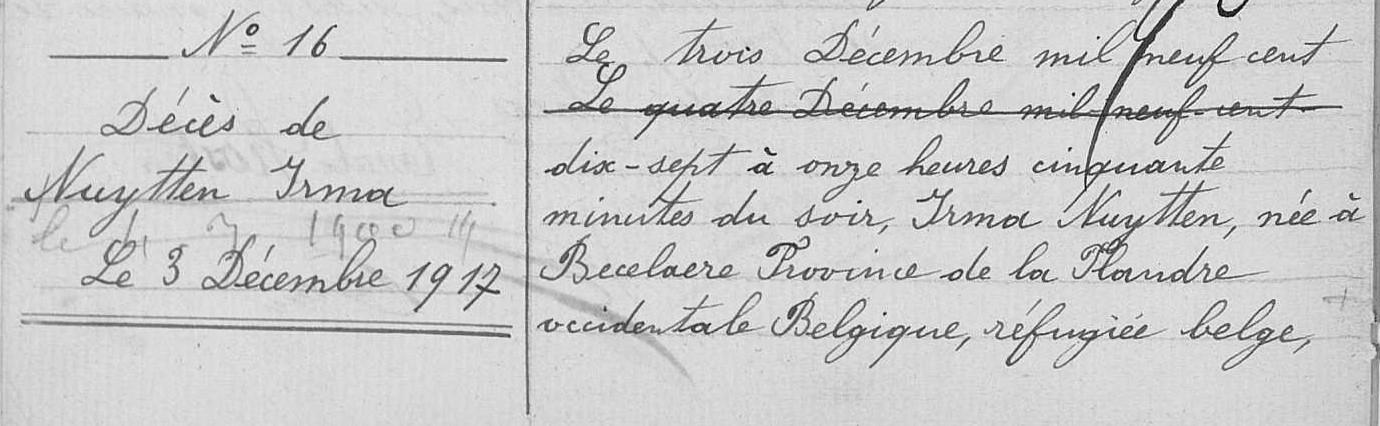 N° 16
Décès de
Nuytten Irma
Le 3 Décembre 1917
Le trois Décembre mil neuf cent
Le quatre Décembre mil neuf cent
dix-sept à onze heures cinquante
minutes du soir, Irma Nuytten, née à
Becelaere Province de la Flandre
occidentale Belgique, réfugiée belge,